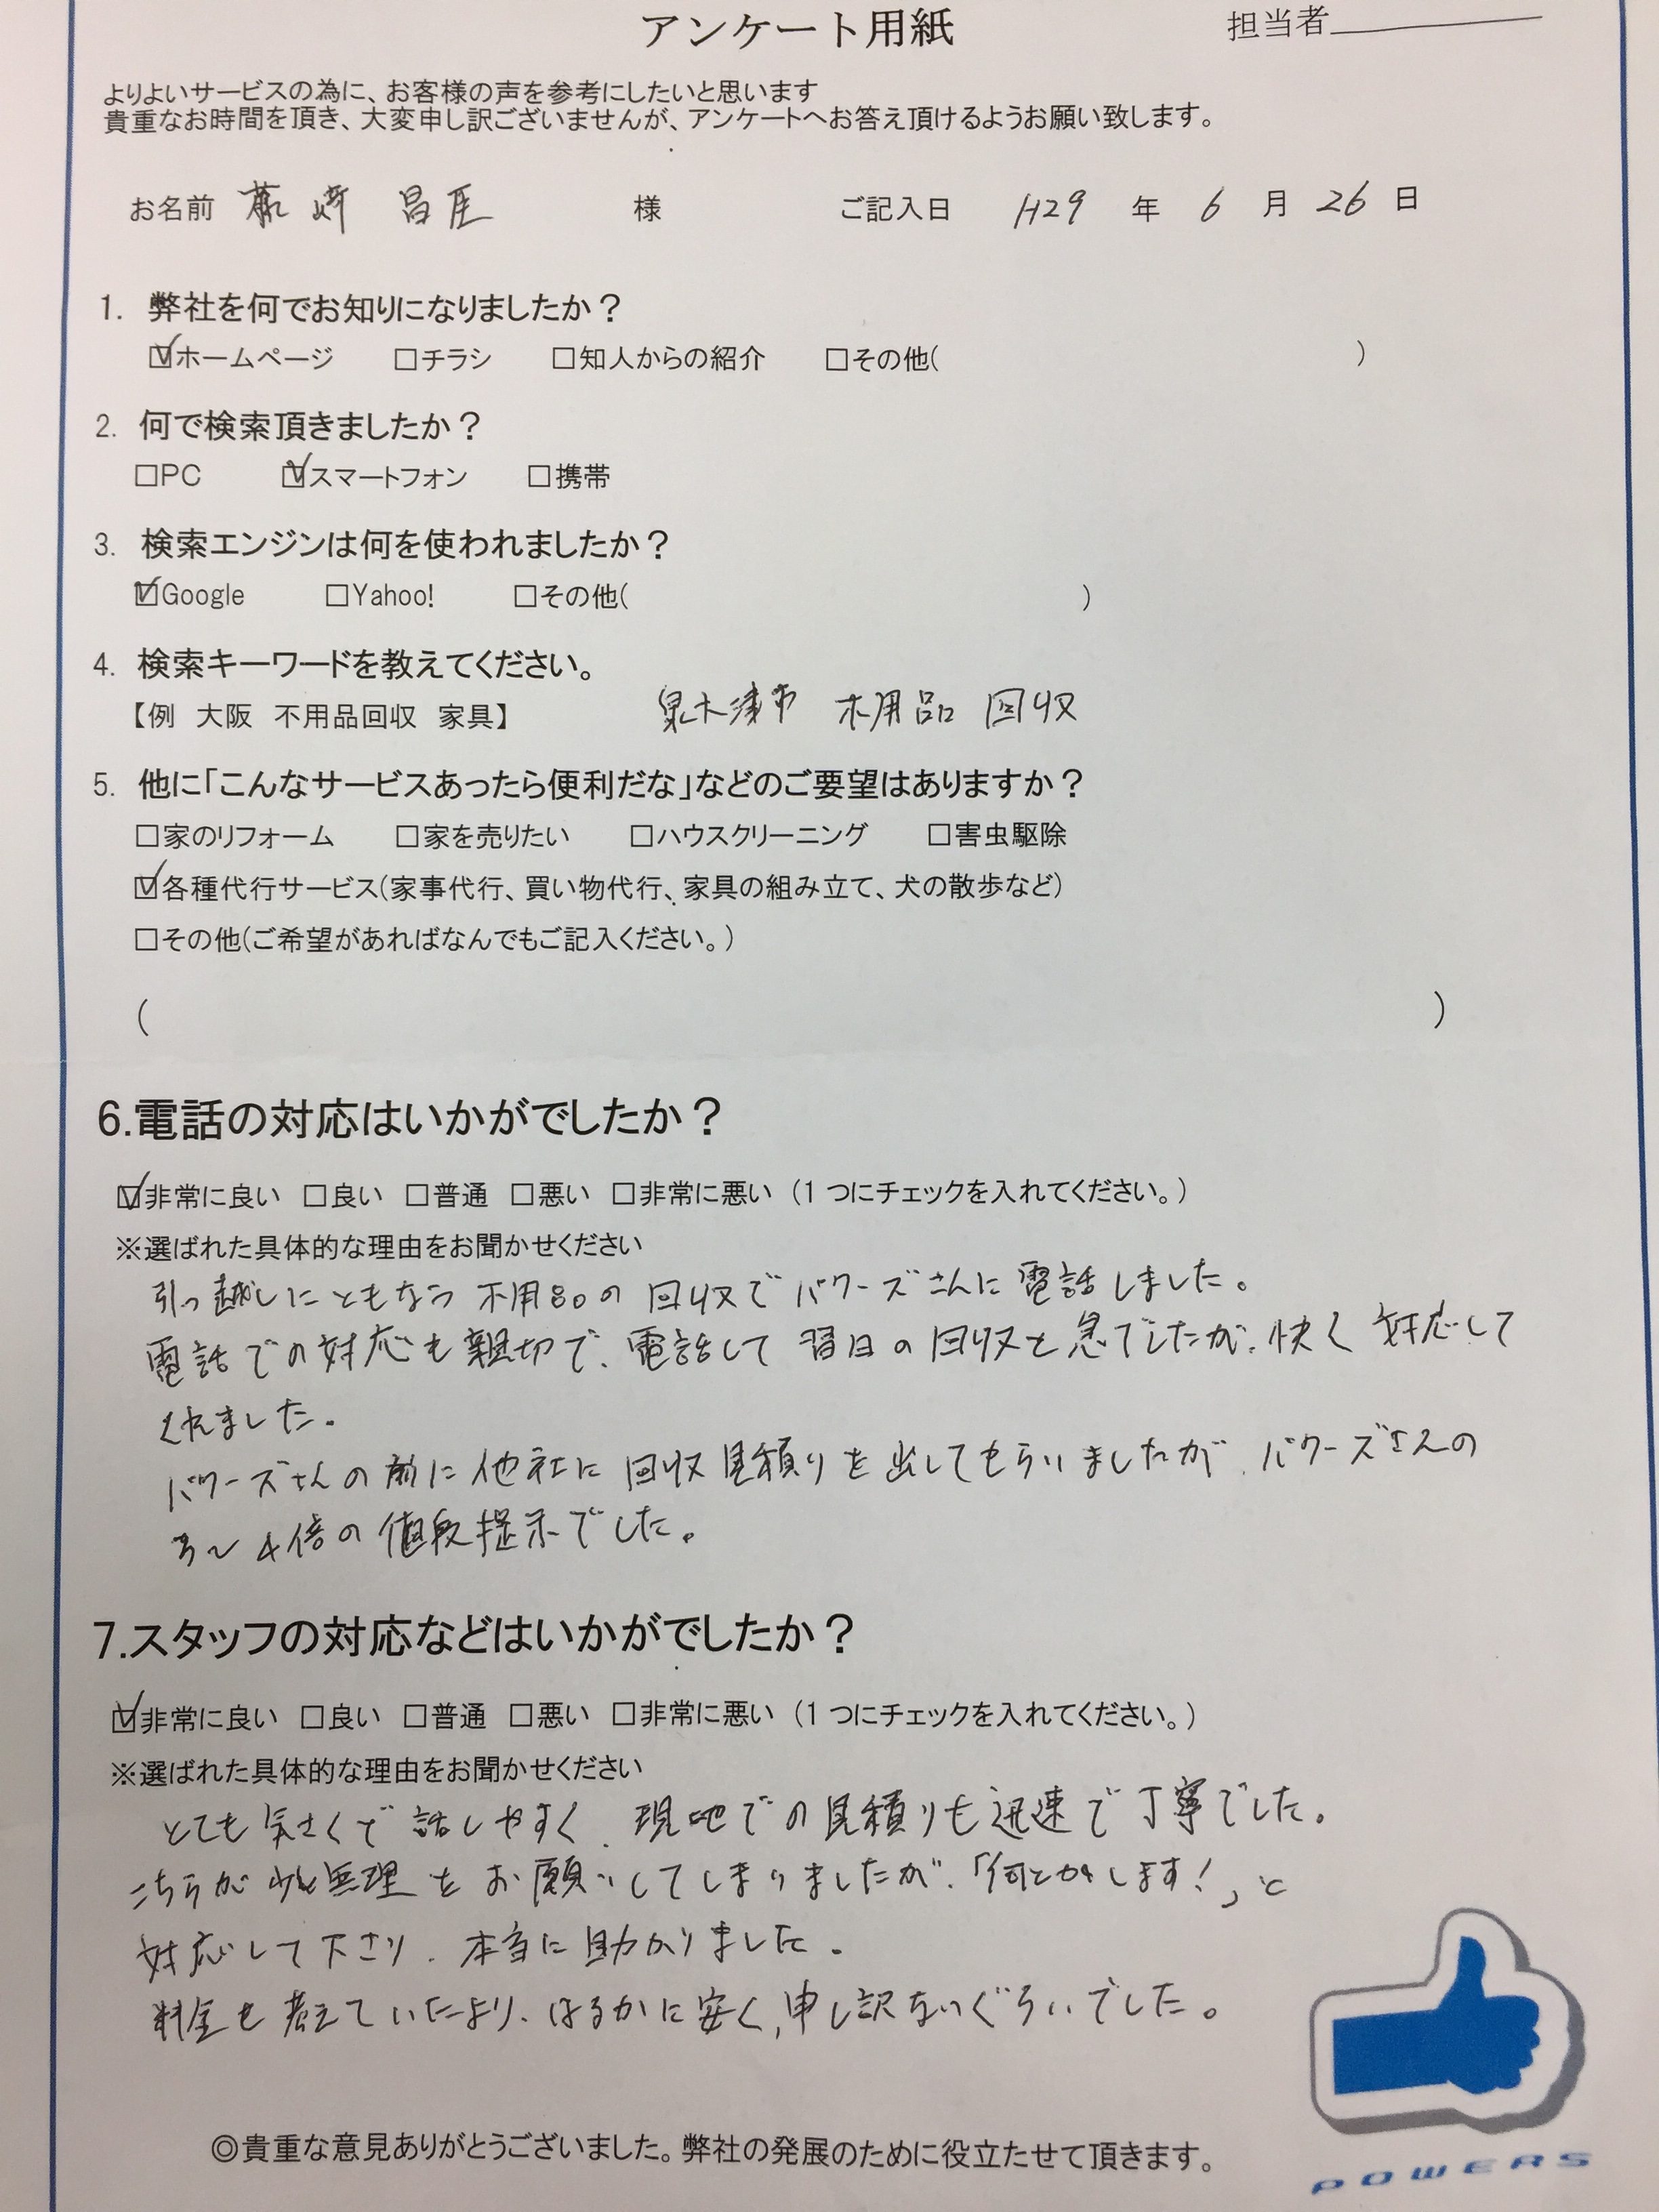 アンケート用紙
担当者
よりよいサービスの為に、お客様の声を参考にしたいと思います
貴重なお時間を頂き、大変申し訳ございませんが、アンケートへお答え頂けるようお願い致します。
お名前 藤崎 昌臣 様 ご記入日 H29 年 6 月 26 日
1. 弊社を何でお知りになりましたか？
☑ホームページ □チラシ □知人からの紹介 □その他( )
2. 何で検索頂きましたか？
□PC ☑スマートフォン □携帯
3. 検索エンジンは何を使われましたか？
☑Google □Yahoo! □その他( )
4. 検索キーワードを教えてください。
【例 大阪 不用品回収 家具】 泉大津市 不用品 回収
5. 他に「こんなサービスあったら便利だな」などのご要望はありますか？
□家のリフォーム □家を売りたい □ハウスクリーニング □害虫駆除
☑各種代行サービス(家事代行、買い物代行、家具の組み立て、犬の散歩など)
□その他(ご希望があればなんでもご記入ください。)
( )
6.電話の対応はいかがでしたか？
☑非常に良い □良い □普通 □悪い □非常に悪い (1つにチェックを入れてください。)
※選ばれた具体的な理由をお聞かせください
引っ越しにともなう 不用品の 回収で パワーズさんに 電話しました。
電話での対応も親切で、電話して 翌日の回収と急でしたが、快く 対応して
くれました。
パワーズさんの前に他社に 回収見積りを出してもらいましたが、パワーズさんの
3〜4倍の値段提示でした。
7.スタッフの対応などはいかがでしたか？
☑非常に良い □良い □普通 □悪い □非常に悪い (1つにチェックを入れてください。)
※選ばれた具体的な理由をお聞かせください
とても気さくで話しやすく、現地での見積りも迅速で丁寧でした。
こちらが少と無理をお願いしてしまいましたが、「何とかします!」と
対応して下さり、本当に助かりました。
料金も考えていたより、はるかに安く,申し訳ないぐらいでした。
◎貴重な意見ありがとうございました。弊社の発展のために役立たせて頂きます。
POWERS